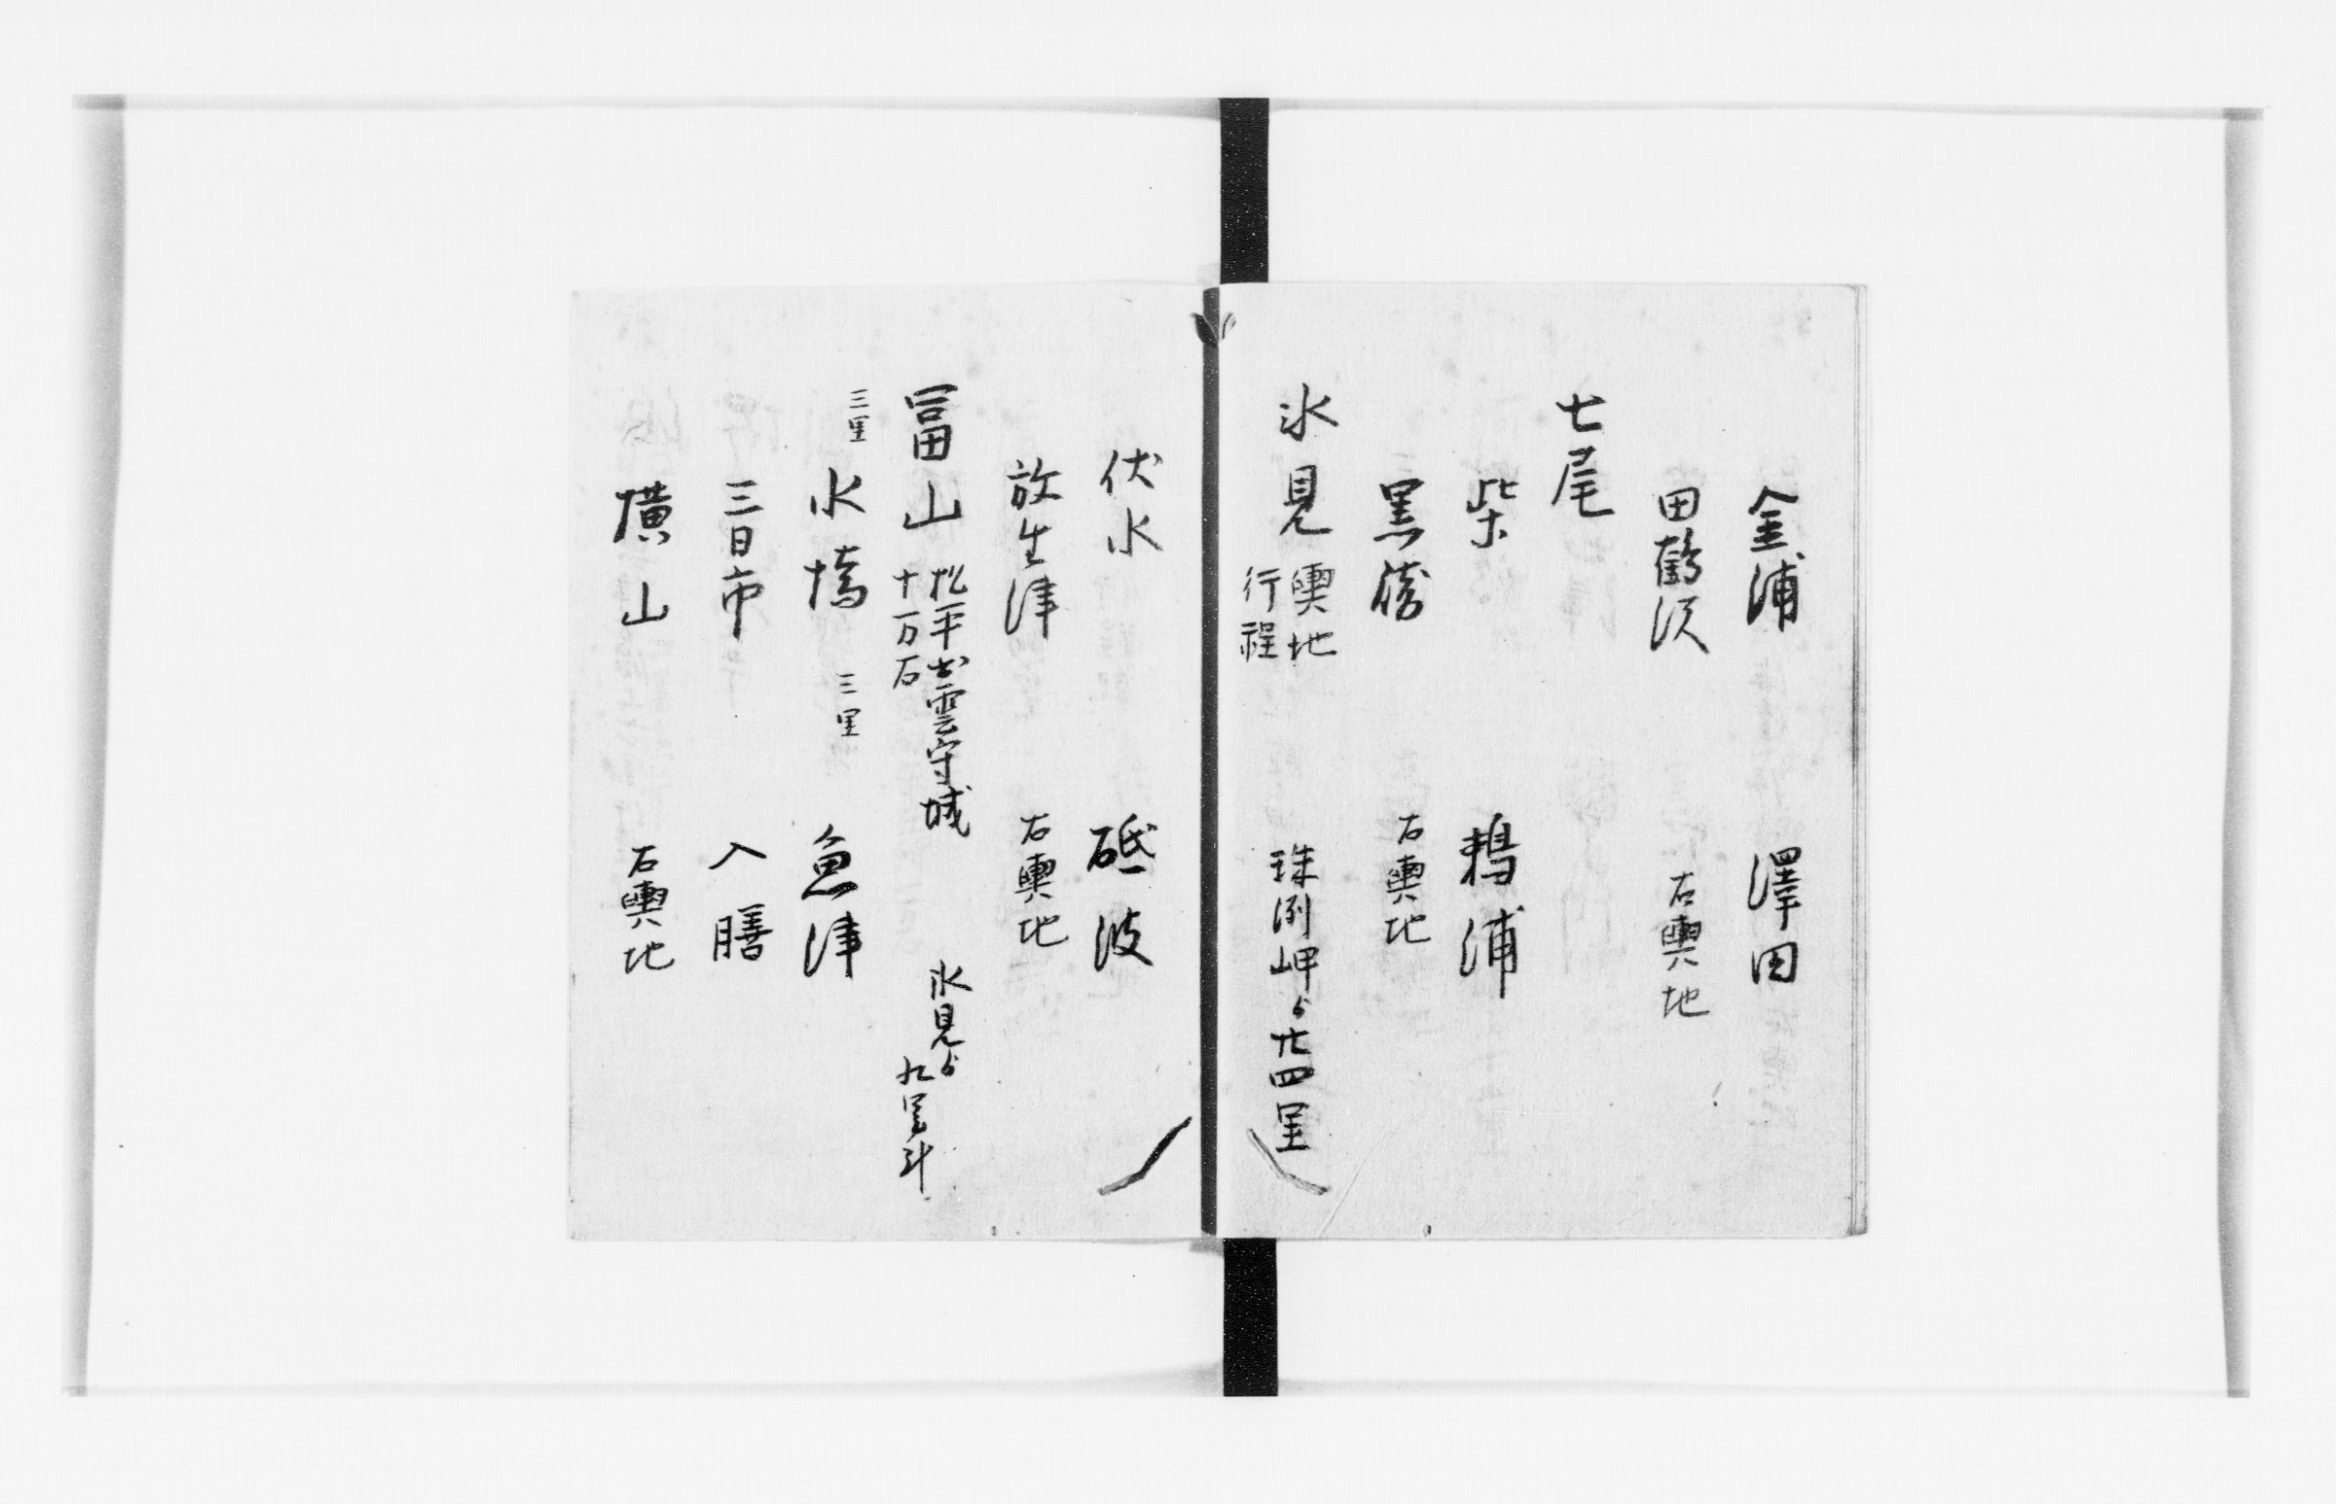 金浦　澤田
田鶴浜　右輿地
七尾
柴　鵜浦
黒﨑　右輿地
氷見　輿地
行程
珠洲岬ゟ廿四里
伏水　砥波
放生津　右輿地
冨山　松平出雲守城
十万石
氷見ゟ
九里斗
三里　水橋　三里　魚津
三日市　入膳
横山　右輿地